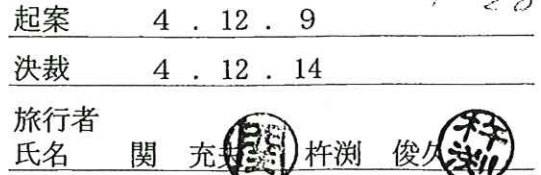 起案 4 . 12 . 9
決裁 4 . 12 . 14
旅行者
氏名 関 充 関 杵渕 俊久 杵渕